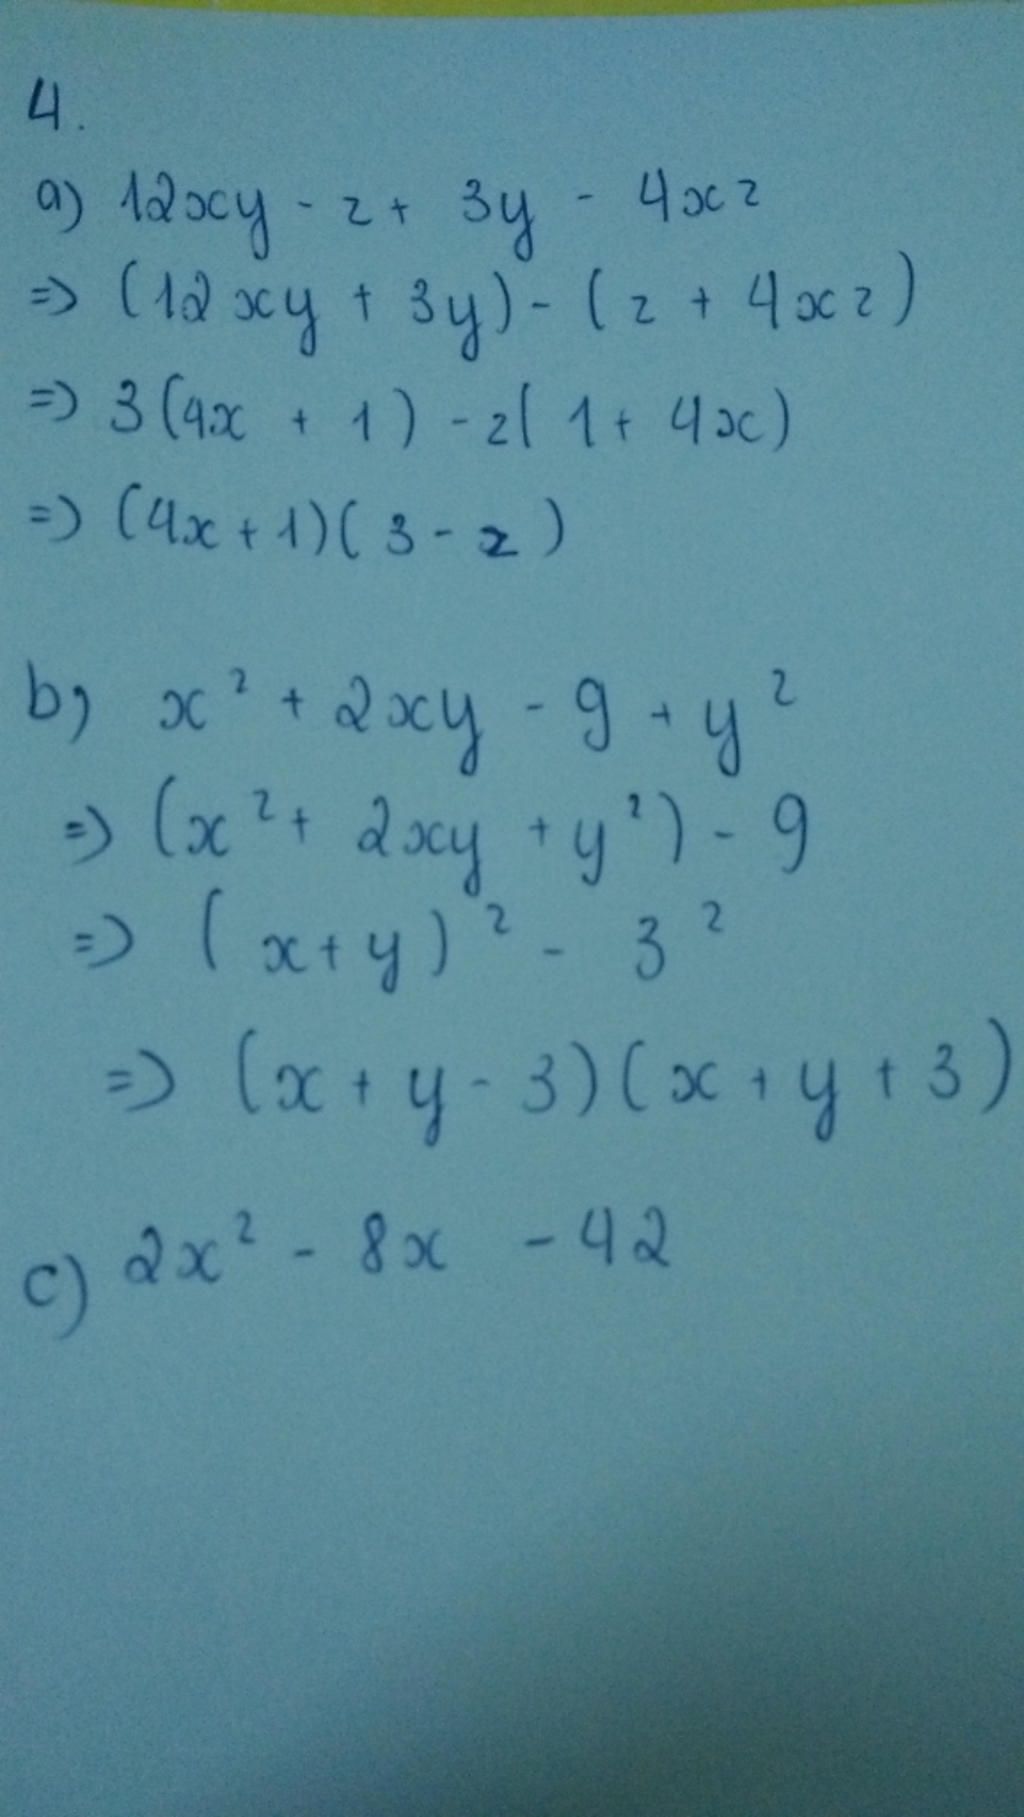 4.
a) 12xy - z + 3y - 4xz
=> (12xy + 3y) - (z + 4xz)
=> 3(4x + 1) - z(1 + 4x)
=> (4x+1)(3 - z)
b) x² + 2xy - 9 + y²
=> (x² + 2xy + y²) - 9
=> (x+y)² - 3²
=> (x + y - 3)(x + y + 3)
c) 2x² - 8x - 42